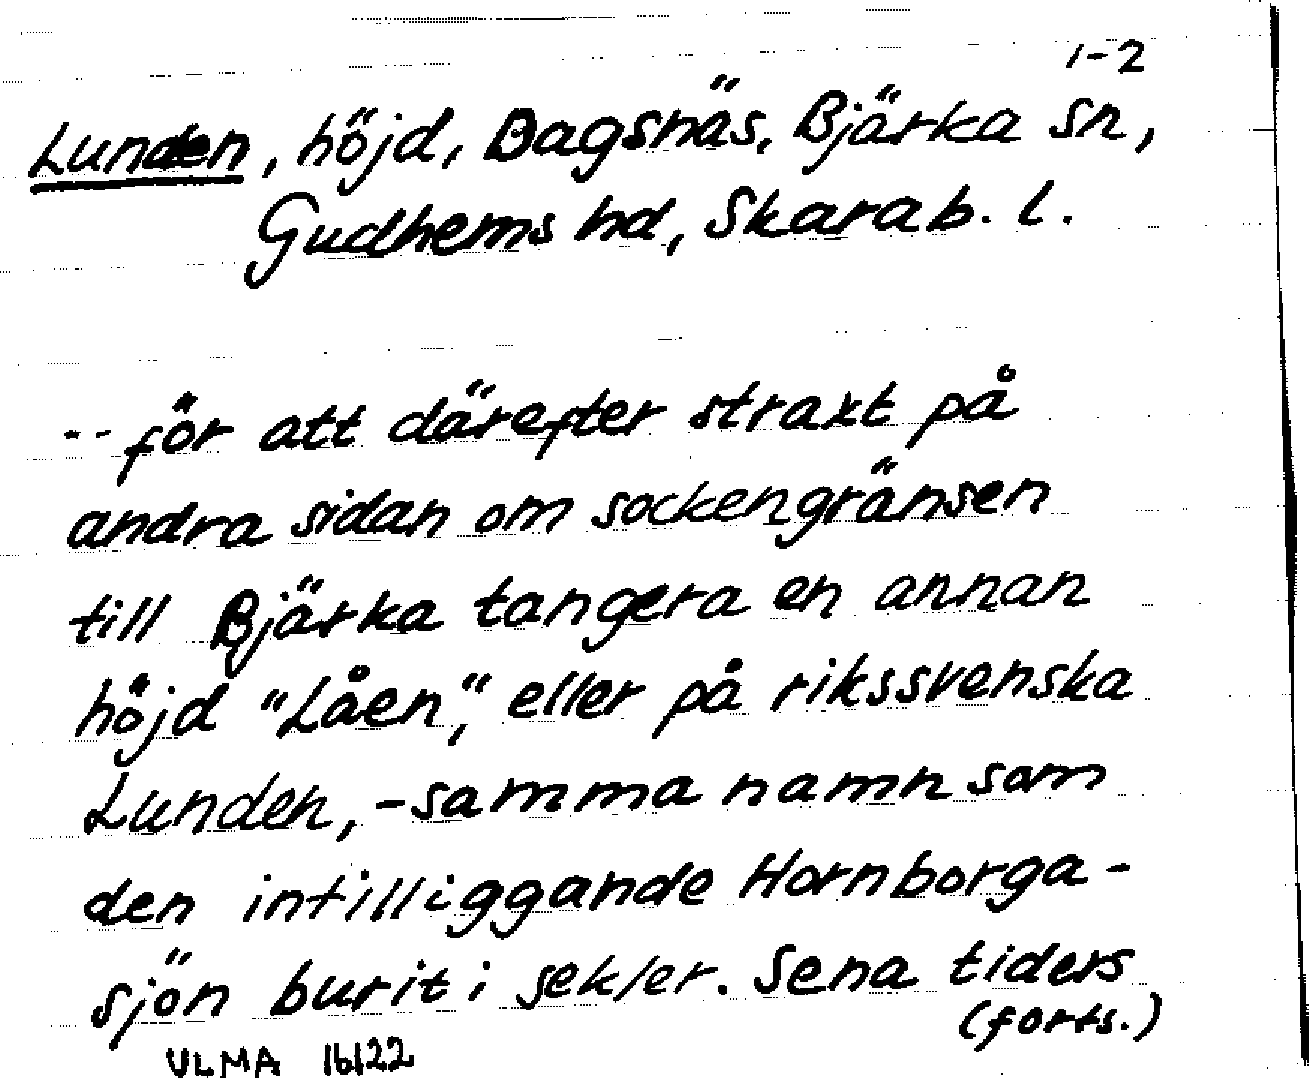 1-2
Lunden, höjd, Bagsnäs, Bjärka sn,
Gudhems hd, Skarab. l.
-- för att därefter straxt på
andra sidan om sockengränsen
till Bjärka tangera en annan
höjd "Låen," eller på rikssvenska
Lunden, - samma namn som
den intilliggande Hornborga-
sjön burit i sekler. Sena tiders
(forts.)
ULMA 16122